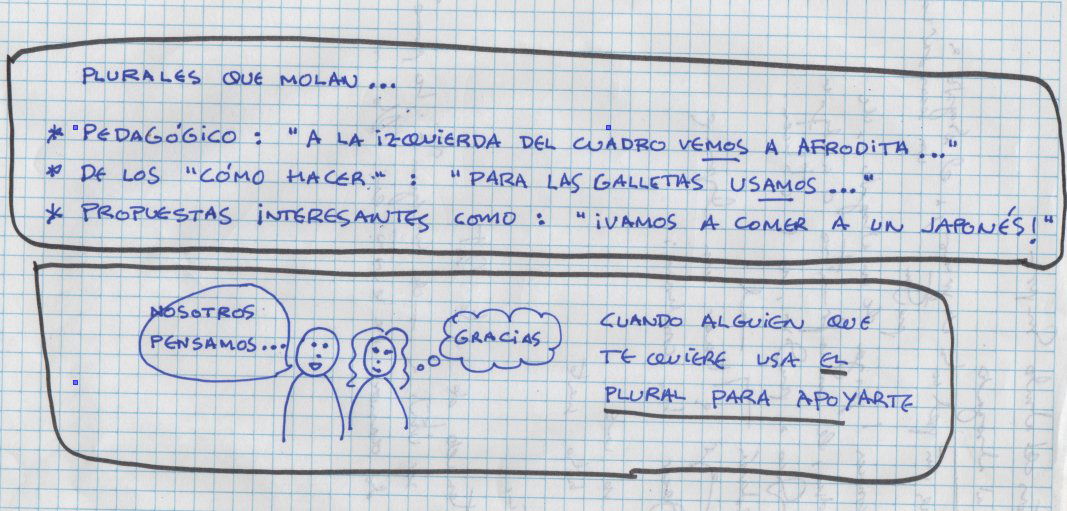 PLURALES QUE MOLAN...
* PEDAGÓGICO : "A LA IZQUIERDA DEL CUADRO VEMOS A AFRODITA..."
* DE LOS "CÓMO HACER" : "PARA LAS GALLETAS USAMOS..."
* PROPUESTAS INTERESANTES COMO : "¡VAMOS A COMER A UN JAPONÉS!"
NOSOTROS
PENSAMOS...
GRACIAS
CUANDO ALGUIEN QUE
TE QUIERE USA EL
PLURAL PARA APOYARTE